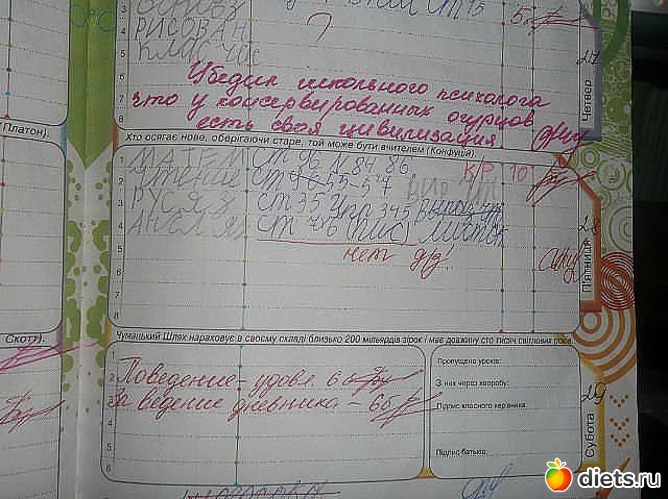 Ст 15
5
РИСОВАН
КЛАС ЧАС
6
7
8
Убедил школьного психолога
что у консервированных огурцов
есть своя цивилизация
Четвер
27
Платон).
Хто осягає нове, оберігаючи старе, той може бути вчителем (Конфуцій).
1 МАТЕМ Ст 96 N 84, 86 К/Р 10
2 ЧТЕНИЕ Ст 96 55-57
3 РУС ЯЗ Ст 35 Упр 345
4 АНГЛ ЯЗ Ст 496 (пис) Листок
нет д/з!
5
6
7
8
П'ятниця
28
Скотт).
Чумацький Шлях нараховує в своєму складі близько 200 мільярдів зірок і має довжину сто тисяч світлових років.
1
2 Поведение - удовл. 6 б
3 За ведение дневника - 6б
4
5
6
Пропущено уроків:
З них через хворобу:
Підпис класного керівника
Підпис батьків:
Субота
29
diets.ru